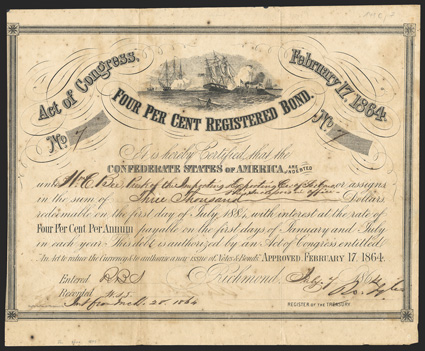 Act of Congress,
February 17, 1864.
FOUR PER CENT REGISTERED BOND.
No 7
No 7
It is hereby Certified, that the
CONFEDERATE STATES OF AMERICA ARE INDEBTED
unto of the or assigns
in the sum of Three Thousand Dollars
redeemable on the first day of July, 1885, with interest at the rate of
Four Per Cent Per Annum payable on the first days of January and July
in each year. This debt is authorized by an Act of Congress entitled
An Act to reduce the Currency & to authorize a new issue of Notes & Bonds. APPROVED FEBRUARY 17. 1864.
Entered Richmond, July 1864
Recorded
Int from 1864
REGISTER OF THE TREASURY